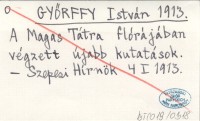 GYÖRFFY István 1913.
A Magas Tátra flórájában
végzett ujabb kutatások.
– Szepesi Hirnök 4 I 1913.